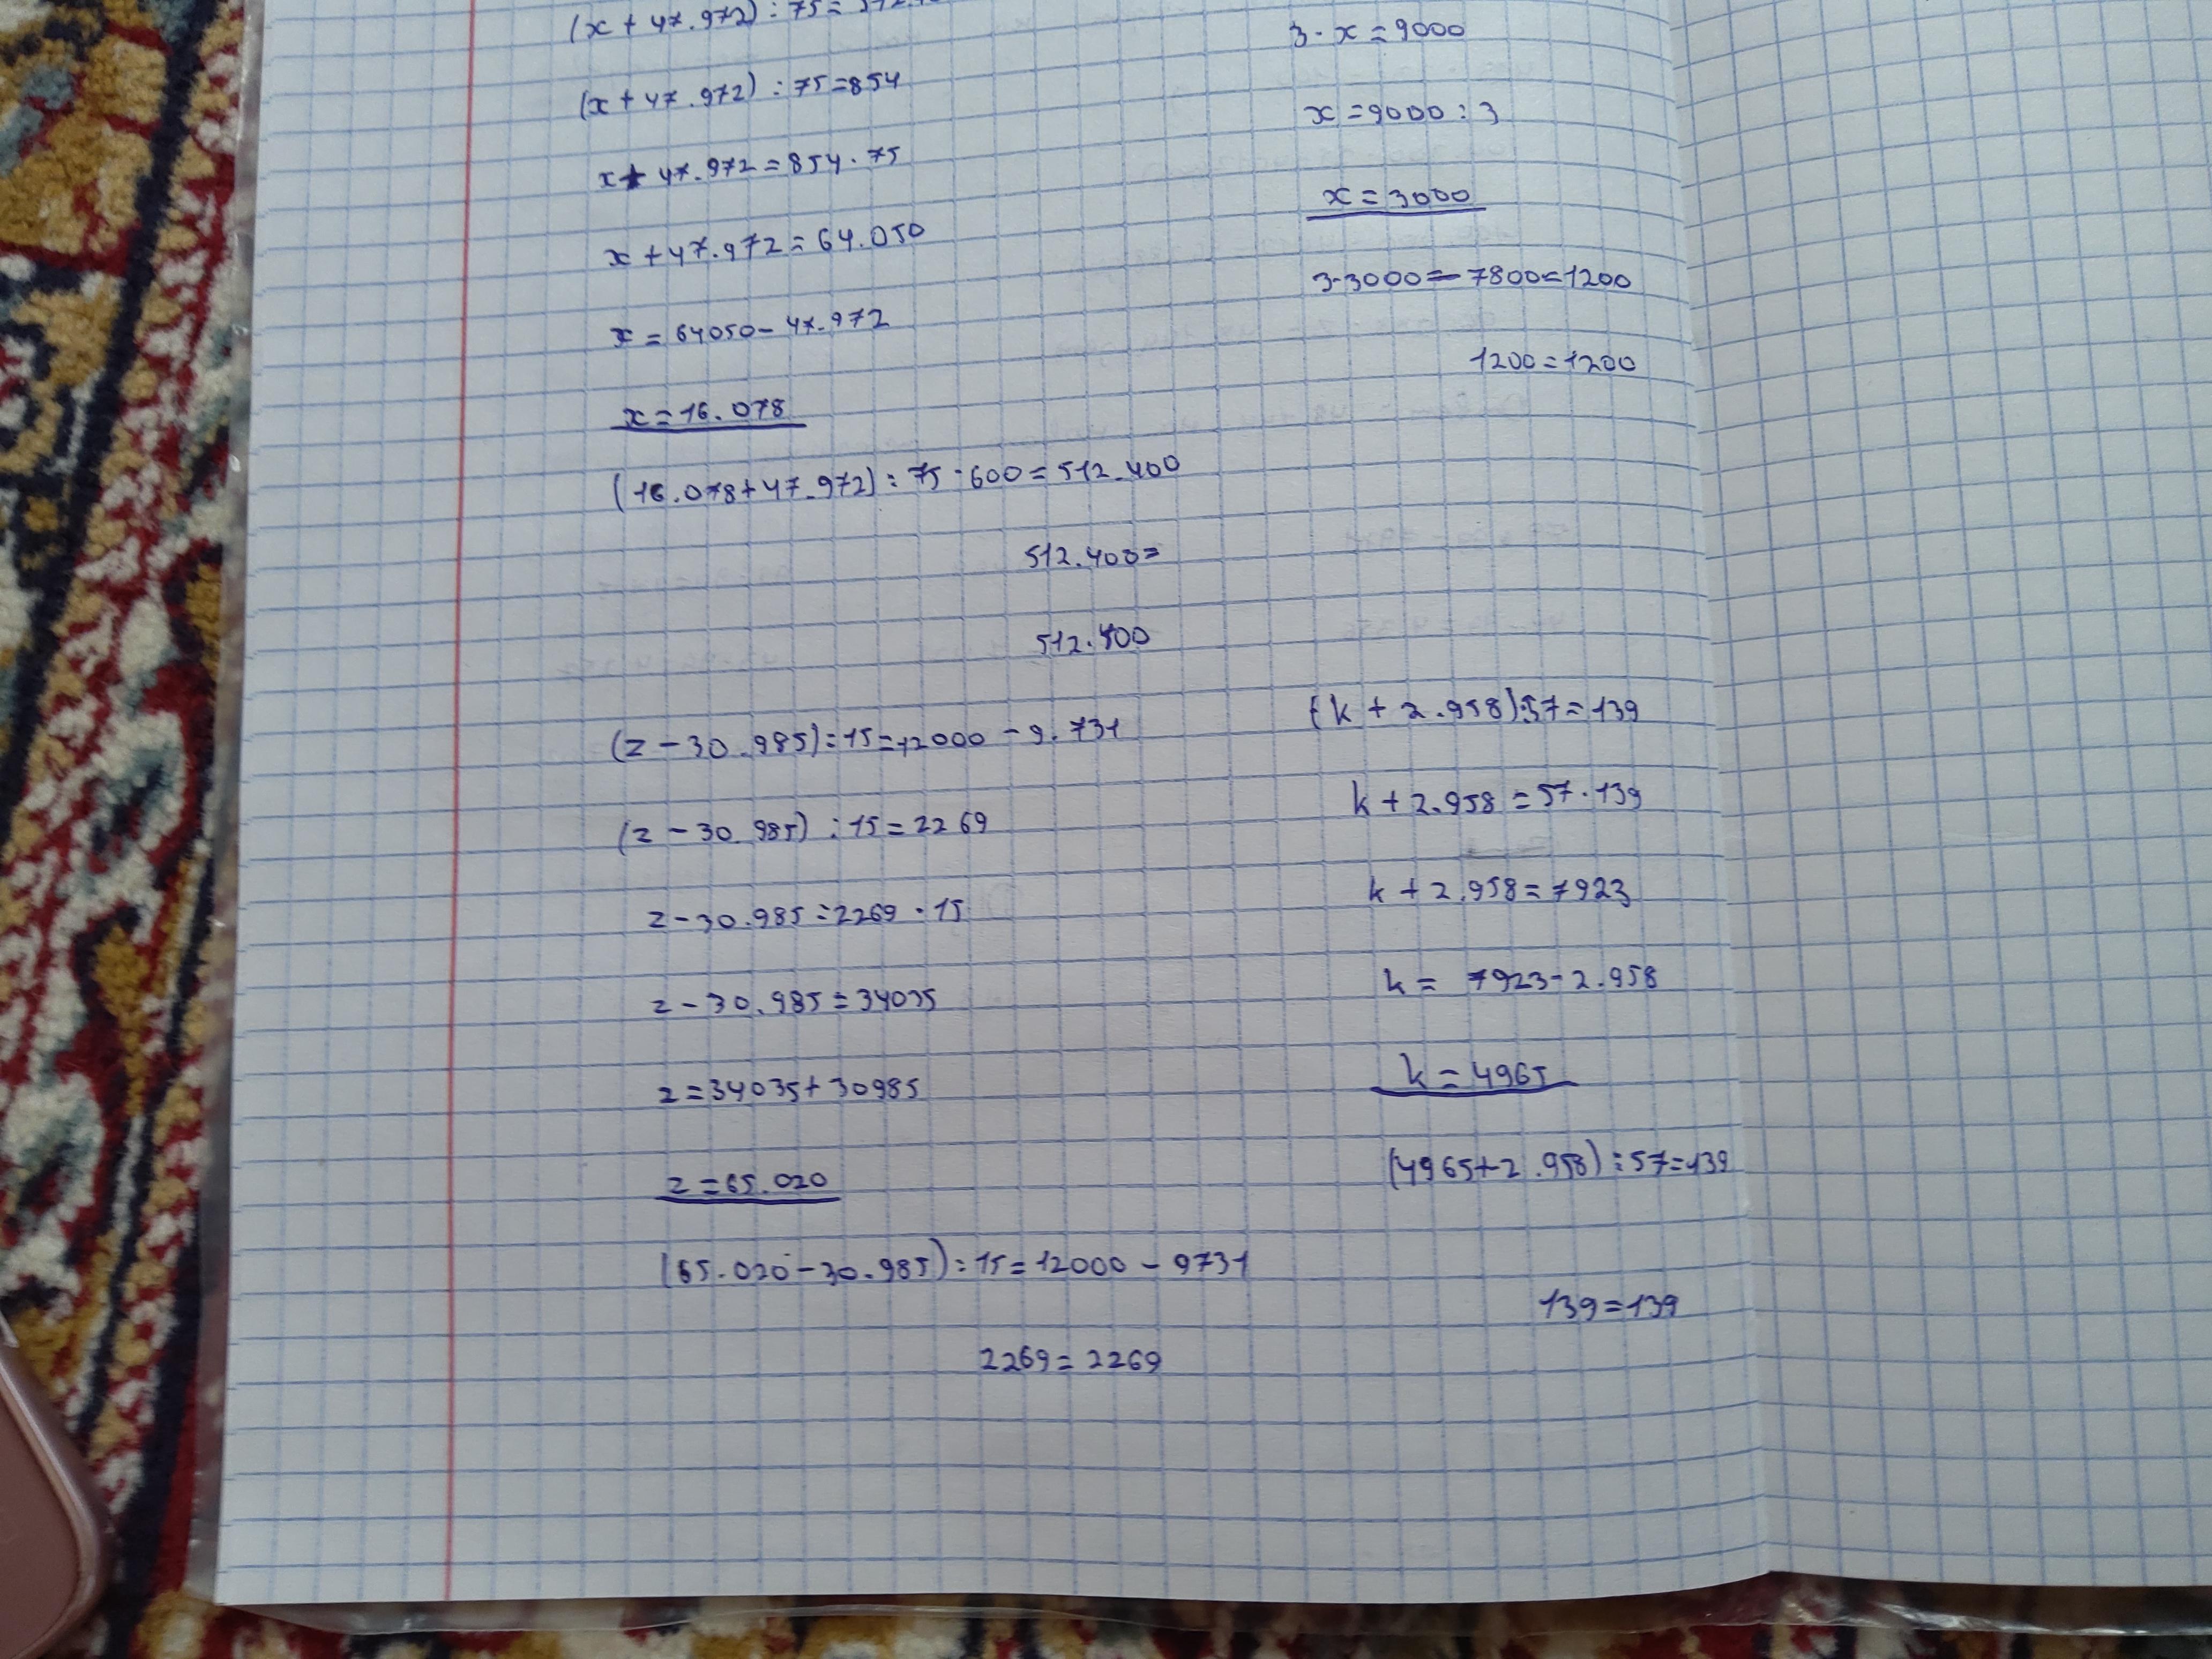 (x + 47.972) : 75 =
(x + 47.972) : 75 = 854
x + 47.972 = 854 · 75
x + 47.972 = 64.050
x = 64050 - 47.972
x = 16.078
(16.078 + 47.972) : 75 · 600 = 512.400
512.400 =
512.400
(z - 30.985) : 15 = 12000 - 9.731
(z - 30.985) : 15 = 2269
z - 30.985 = 2269 · 15
z - 30.985 = 34035
z = 34035 + 30985
z = 65.020
(65.020 - 30.985) : 15 = 12000 - 9731
2269 = 2269
3 · x = 9000
x = 9000 : 3
x = 3000
3 · 3000 - 7800 = 1200
1200 = 1200
(k + 2.958) : 57 = 139
k + 2.958 = 57 · 139
k + 2.958 = 7923
k = 7923 - 2.958
k = 4965
(4965 + 2.958) : 57 = 139
139 = 139